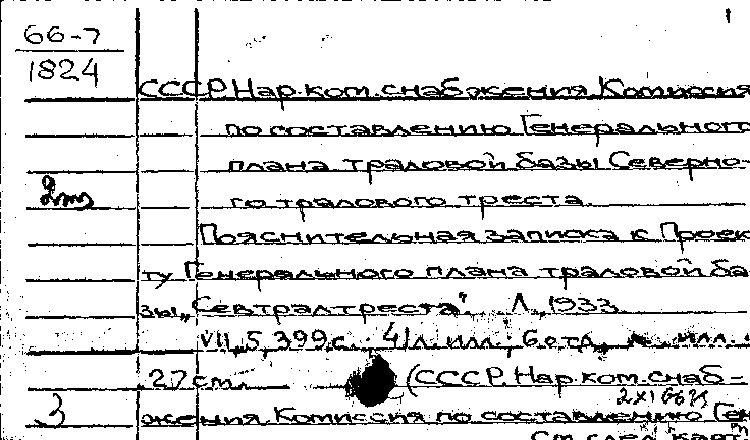 1
66-7
1824
СССР. Нар. ком. снабжения. Комиссия
по составлению Генерального
плана траловой базы Северно-
го тралового треста.
Пояснительная записка к Проек-
ту Генерального плана траловой ба-
зы „Севтралтреста". Л., 1933.
VII, 5, 399 с. 41 л. илл.; 6 отд. илл.
27 см. (СССР. Нар. ком. снаб-
3
жения. Комиссия по составлению Ген
См. след. карт